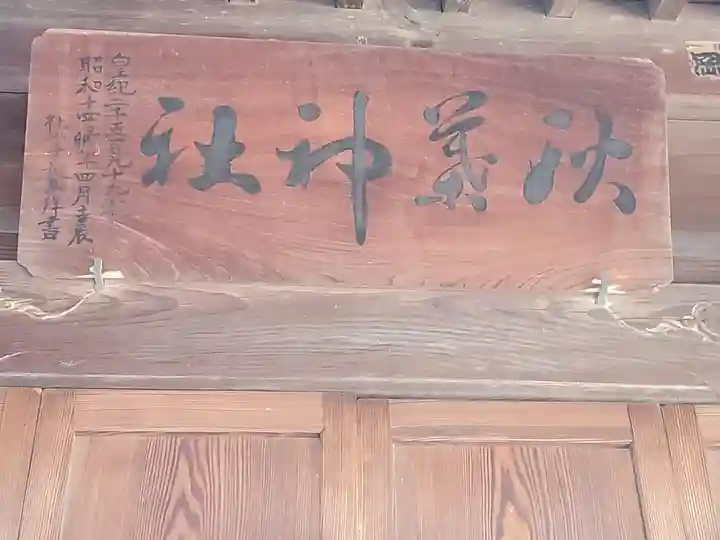 秋葉神社
皇紀二千五百九十九年
昭和十四年四月吉辰
書